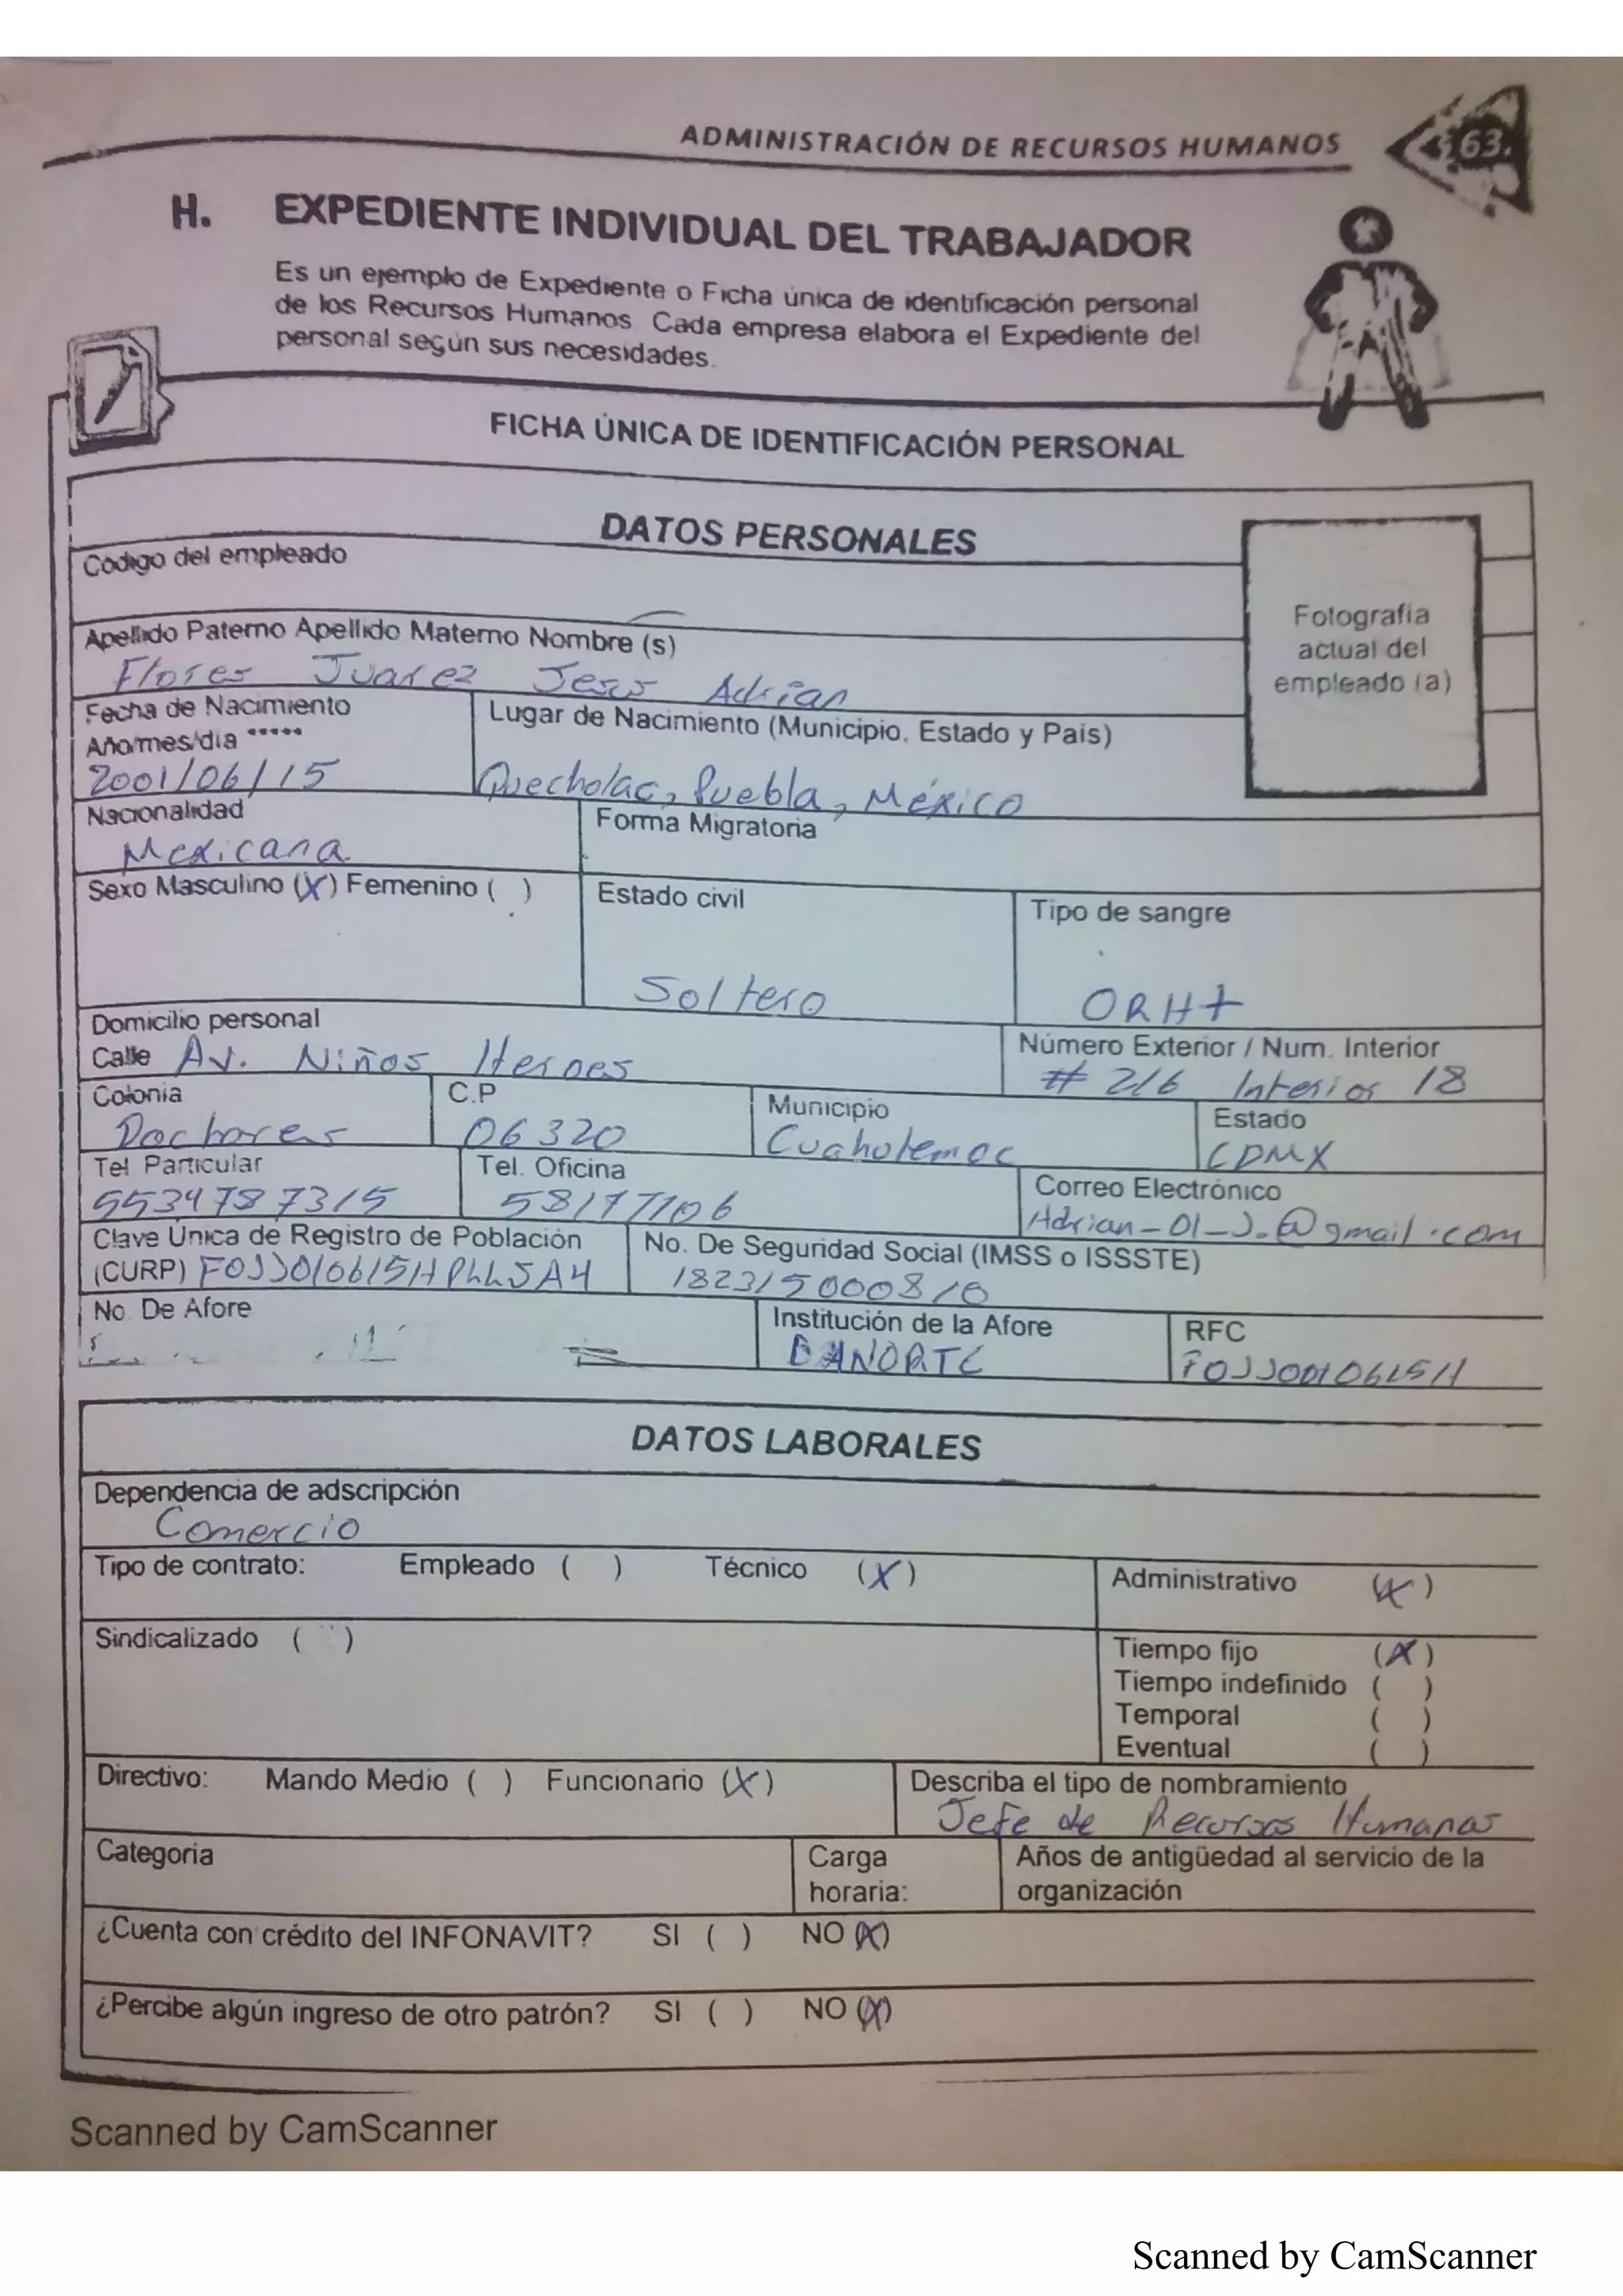 ADMINISTRACIÓN DE RECURSOS HUMANOS 163
H. EXPEDIENTE INDIVIDUAL DEL TRABAJADOR
Es un ejemplo de Expediente o Ficha única de identificación personal
de los Recursos Humanos. Cada empresa elabora el Expediente del
personal según sus necesidades.
FICHA ÚNICA DE IDENTIFICACIÓN PERSONAL
DATOS PERSONALES
Código del empleado
Fotografía
actual del
empleado (a)
Apellido Paterno Apellido Materno Nombre (s)
Flores Juarez Jesus Adrian
Fecha de Nacimiento
Año/mes/día *****
2001/06/15
Lugar de Nacimiento (Municipio, Estado y País)
Quecholac, Puebla, México
Nacionalidad
Mexicana
Forma Migratoria
Sexo Masculino (X) Femenino ( )
Estado civil
Soltero
Tipo de sangre
ORH+
Domicilio personal
Calle Av. Niños Heroes
Número Exterior / Num. Interior
# 216 Interior 18
Colonia
Doctores
C.P
06320
Municipio
Cuahotemoc
Estado
CDMX
Tel Particular
5534787315
Tel. Oficina
58177106
Correo Electrónico
Adrian-01-J.@gmail.com
Clave Única de Registro de Población
(CURP)
No. De Seguridad Social (IMSS o ISSSTE)
18231500810
No. De Afore
Institución de la Afore
BANORTE
RFC
DATOS LABORALES
Dependencia de adscripción
Comercio
Tipo de contrato: Empleado ( ) Técnico (X) Administrativo (X)
Sindicalizado ( )
Tiempo fijo (X)
Tiempo indefinido ( )
Temporal ( )
Eventual ( )
Directivo: Mando Medio ( ) Funcionario (X)
Describa el tipo de nombramiento
Jefe de Recursos Humanos
Categoria
Carga
horaria:
Años de antigüedad al servicio de la
organización
¿Cuenta con crédito del INFONAVIT? SI ( ) NO (X)
¿Percibe algún ingreso de otro patrón? SI ( ) NO (X)
Scanned by CamScanner
Scanned by CamScanner